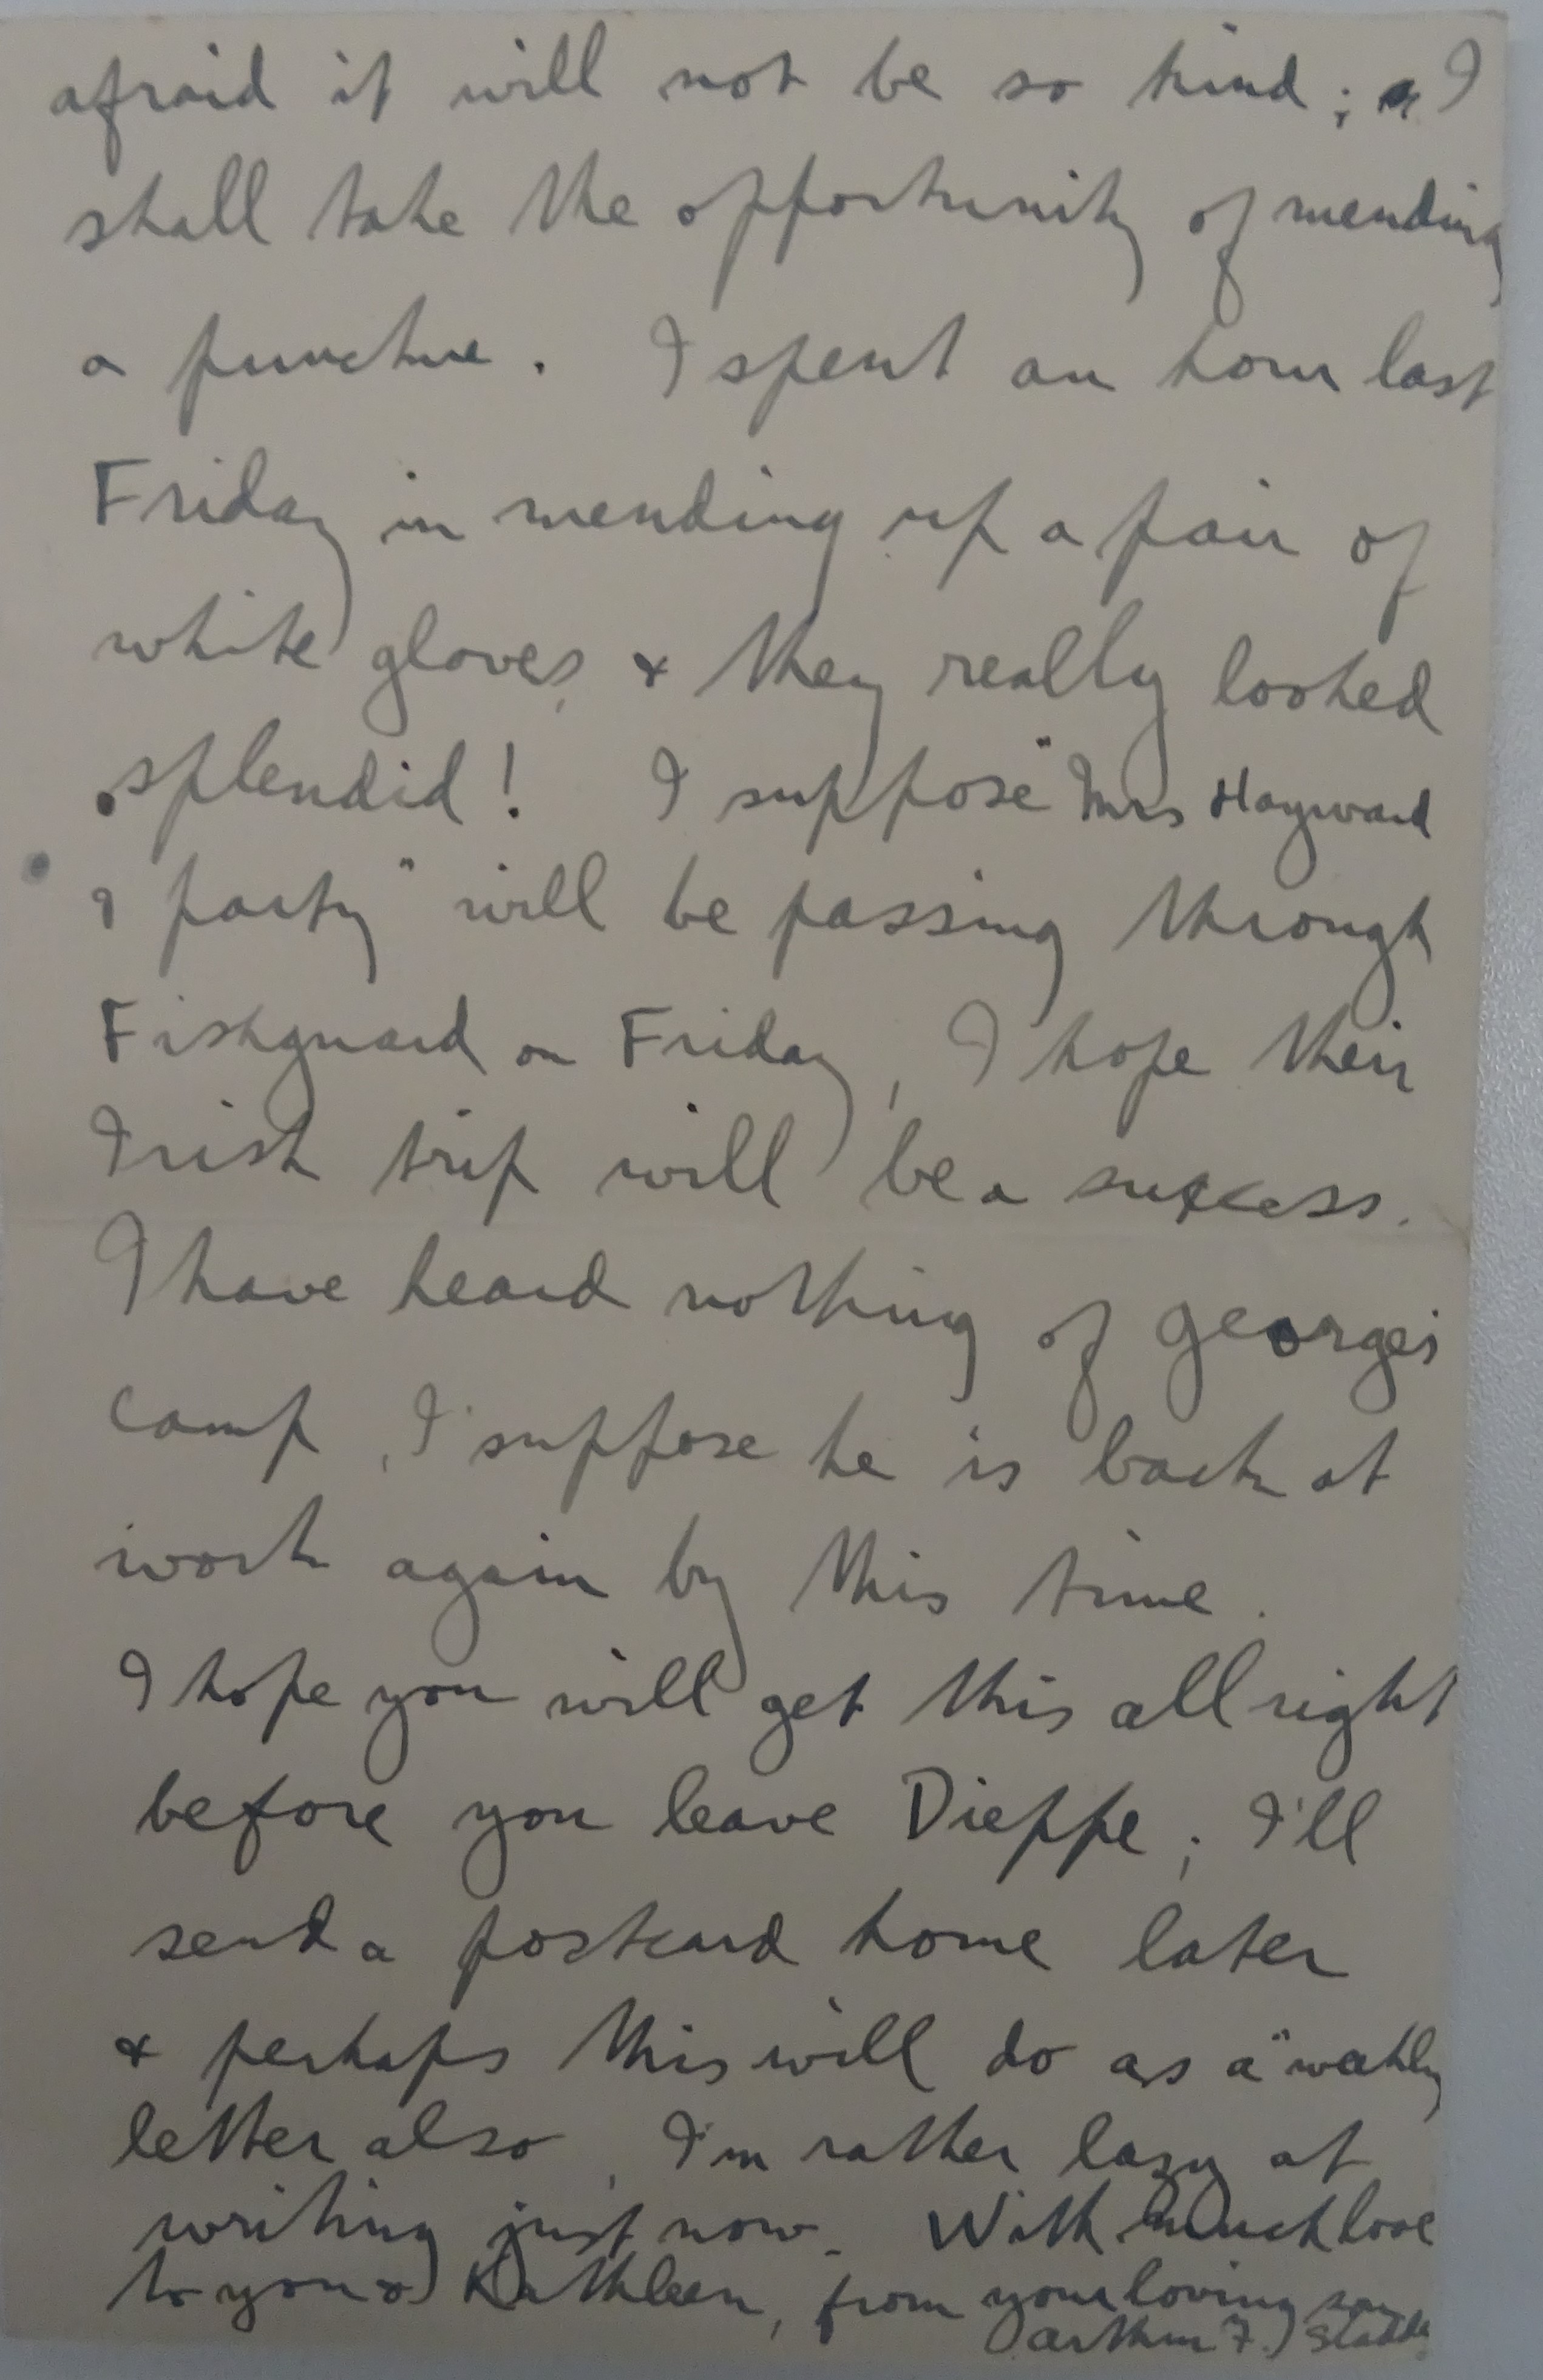 afraid it will not be so kind; I
shall take the opportunity of mending
a puncture. I spent an hour last
Friday in mending up a pair of
white gloves, & they really looked
splendid! I suppose "Mrs Hayward
& party" will be passing through
Fishguard on Friday, I hope their
Irish trip will be a success.
I have heard nothing of George's
camp, I suppose he is back at
work again by this time.
I hope you will get this all right
before you leave Dieppe; I'll
send a postcard home later
& perhaps this will do as a "weekly
letter also, I'm rather lazy at
writing just now. With much love
to you & Kathleen, from your loving son
Arthur F.